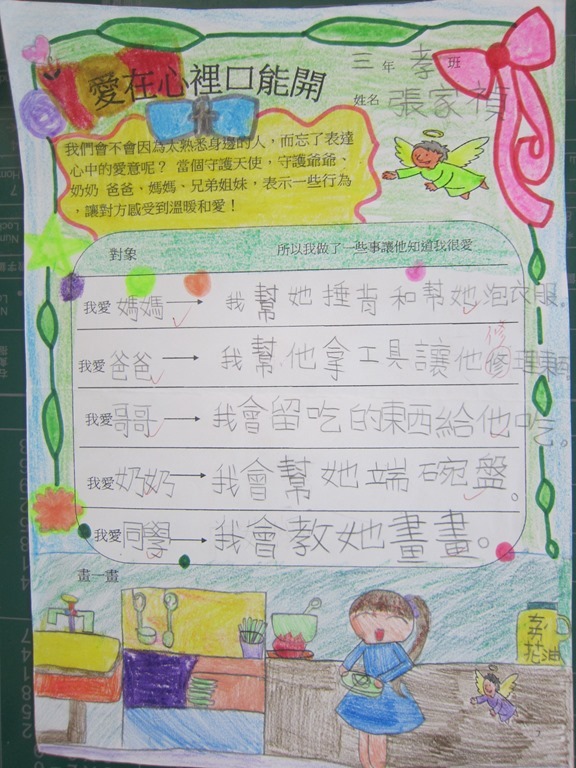 三年 孝班
愛在心裡口能開
姓名 張家禎
我們會不會因為太熟悉身邊的人，而忘了表達
心中的愛意呢？ 當個守護天使，守護爺爺、
奶奶 爸爸、媽媽、兄弟姐妹，表示一些行為
，讓對方感受到溫暖和愛！
對象 所以我做了一些事讓他知道我很愛
我愛媽媽→我幫她捶背和幫她泡衣服。
修
我愛爸爸→我幫他拿工具讓他修理東西
我愛哥哥→我會留吃的東西給他吃。
我愛奶奶→我會幫她端碗盤。
我愛同學→我會教她畫畫。
畫一畫
花油